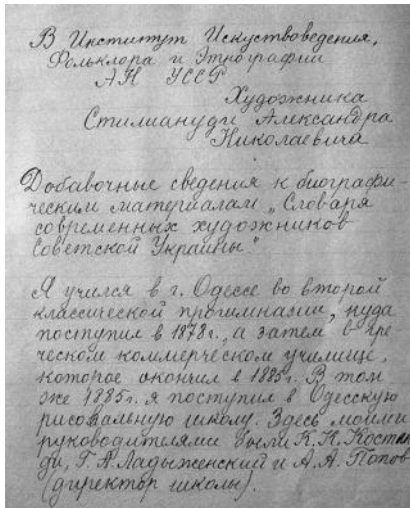 В Институт Искуствоведения,
Фольклора и Этнографии
АН УССР
Художника
Стилиануди Александра
Николаевича
Добавочные сведения к биографи-
ческим материалам „Словаря
современных художников
Советской Украины."
Я учился в г. Одессе во второй
классической прогимназии, куда
поступил в 1878г., а затем в гре-
ческом коммерческом училище,
которое окончил в 1885г. В том
же 1885г. я поступил в Одесскую
рисовальную школу. Здесь моими
руководителями были К.К. Костан-
ди, Г.А. Ладыженский и А.А. Попов
(директор школы).